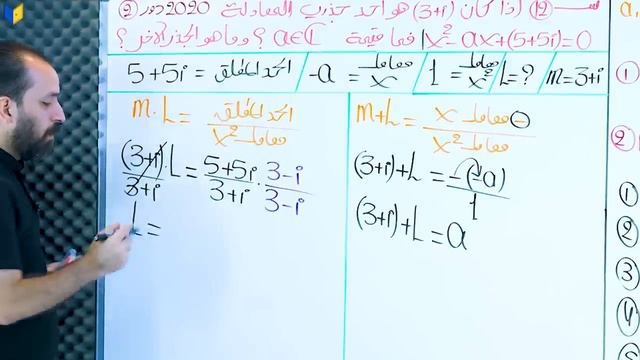 س (12) اذا كان (3+i) هو احد جذري المعادلة 2020 دور 2
x²-ax+(5+5i)=0 فما قيمة a∈C ؟ وما هو الجذر الآخر ؟
5+5i = الحد المطلق / -a = معامل x / 1 = معامل x² / L=? / m=3+i
m.L = الحد المطلق / معامل x²
(3+i).L / 3+i = 5+5i / 3+i . 3-i / 3-i
L =
m+L = - معامل x / معامل x²
(3+i)+L = -(-a) / 1
(3+i)+L = a
a,
1
2
1
2
3
4